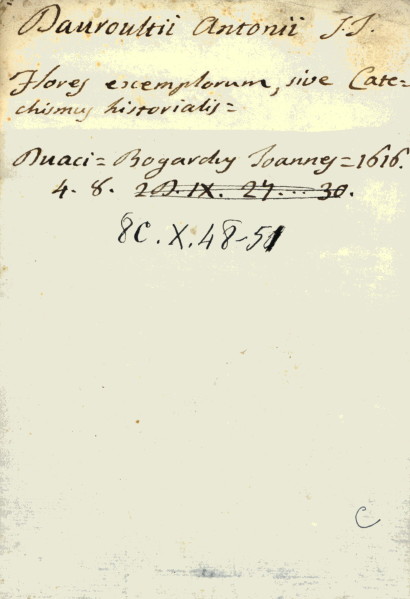 Dauroultii Antonii S.J.
Flores excemplorum, sive Cate=
chismus historialis=
Duaci= Bogardus Joannes= 1616.
4. 8. 2D. IX. 27... 30.
8C. X. 48-51
C